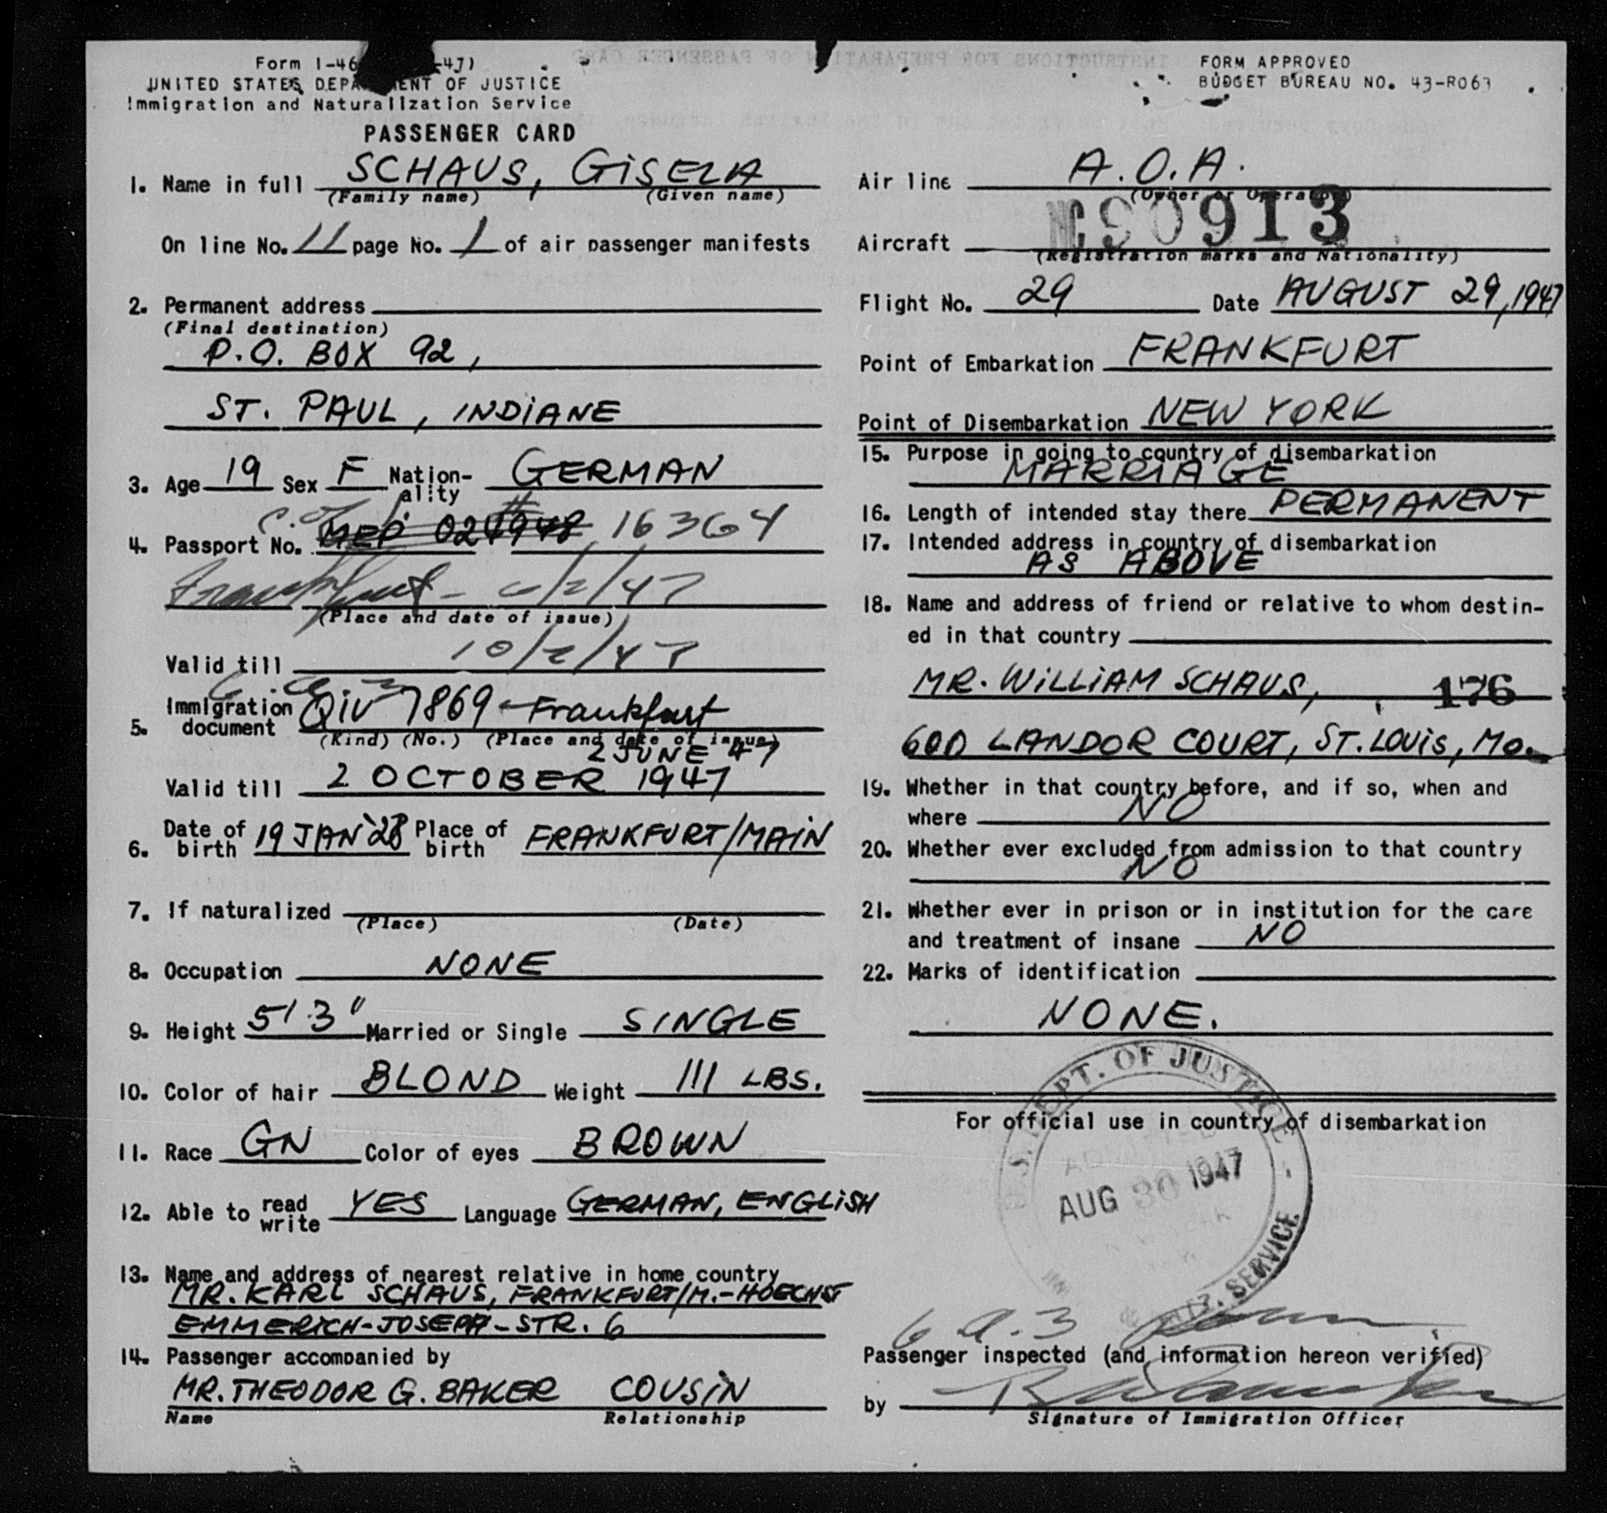 Form I-46 -47)
UNITED STATES DEPARTMENT OF JUSTICE
Immigration and Naturalization Service
PASSENGER CARD
1. Name in full SCHAUS, GISELA
(Family name) (Given name)
On line No. 11 page No. 1 of air passenger manifests
2. Permanent address
(Final destination)
P.O. BOX 92,
ST. PAUL, INDIANE
3. Age 19 Sex F Nation-ality GERMAN
4. Passport No. 16364
Frankfurt - 6/2/47
(Place and date of issue)
Valid till 10/2/47
5. Immigration document QIV 7869 - Frankfurt
(Kind) (No.) (Place and date of issue)
2 JUNE 47
Valid till 2 OCTOBER 1947
6. Date of birth 19 JAN '28 Place of birth FRANKFURT/MAIN
7. If naturalized
(Place) (Date)
8. Occupation NONE
9. Height 5' 3" Married or Single SINGLE
10. Color of hair BLOND Weight 111 LBS.
11. Race GN Color of eyes BROWN
12. Able to read write YES Language GERMAN, ENGLISH
13. Name and address of nearest relative in home country
MR. KARL SCHAUS, FRANKFURT/M.-HOECHST
EMMERICH-JOSEPH-STR. 6
14. Passenger accompanied by
MR. THEODOR G. BAKER COUSIN
Name Relationship
FORM APPROVED
BUDGET BUREAU NO. 43-R063
Air line A.O.A.
(Owner or Operator)
Aircraft NC90913
(Registration marks and Nationality)
Flight No. 29 Date AUGUST 29, 1947
Point of Embarkation FRANKFURT
Point of Disembarkation NEW YORK
15. Purpose in going to country of disembarkation
MARRIAGE
16. Length of intended stay there PERMANENT
17. Intended address in country of disembarkation
AS ABOVE
18. Name and address of friend or relative to whom destin-
ed in that country
MR. WILLIAM SCHAUS, 176
600 LANDOR COURT, ST. LOUIS, MO.
19. Whether in that country before, and if so, when and
where NO
20. Whether ever excluded from admission to that country
NO
21. Whether ever in prison or in institution for the care
and treatment of insane NO
22. Marks of identification
NONE.
DEPT. OF JUSTICE
For official use in country of disembarkation
AUG 30 1947
SERVICE
Passenger inspected (and information hereon verified)
by
Signature of Immigration Officer